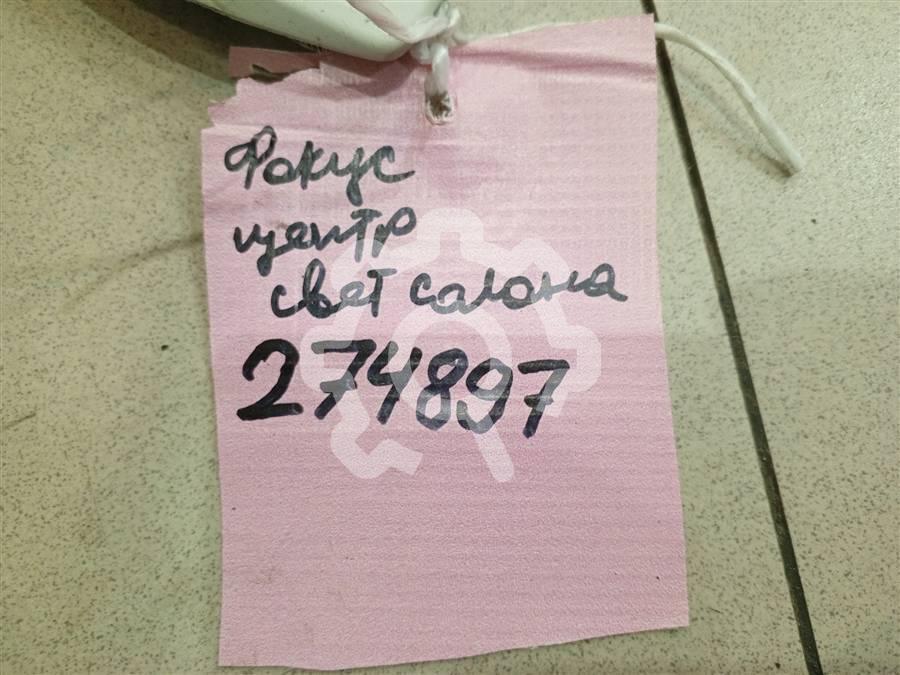 Фокус
центр
свет салона
274897